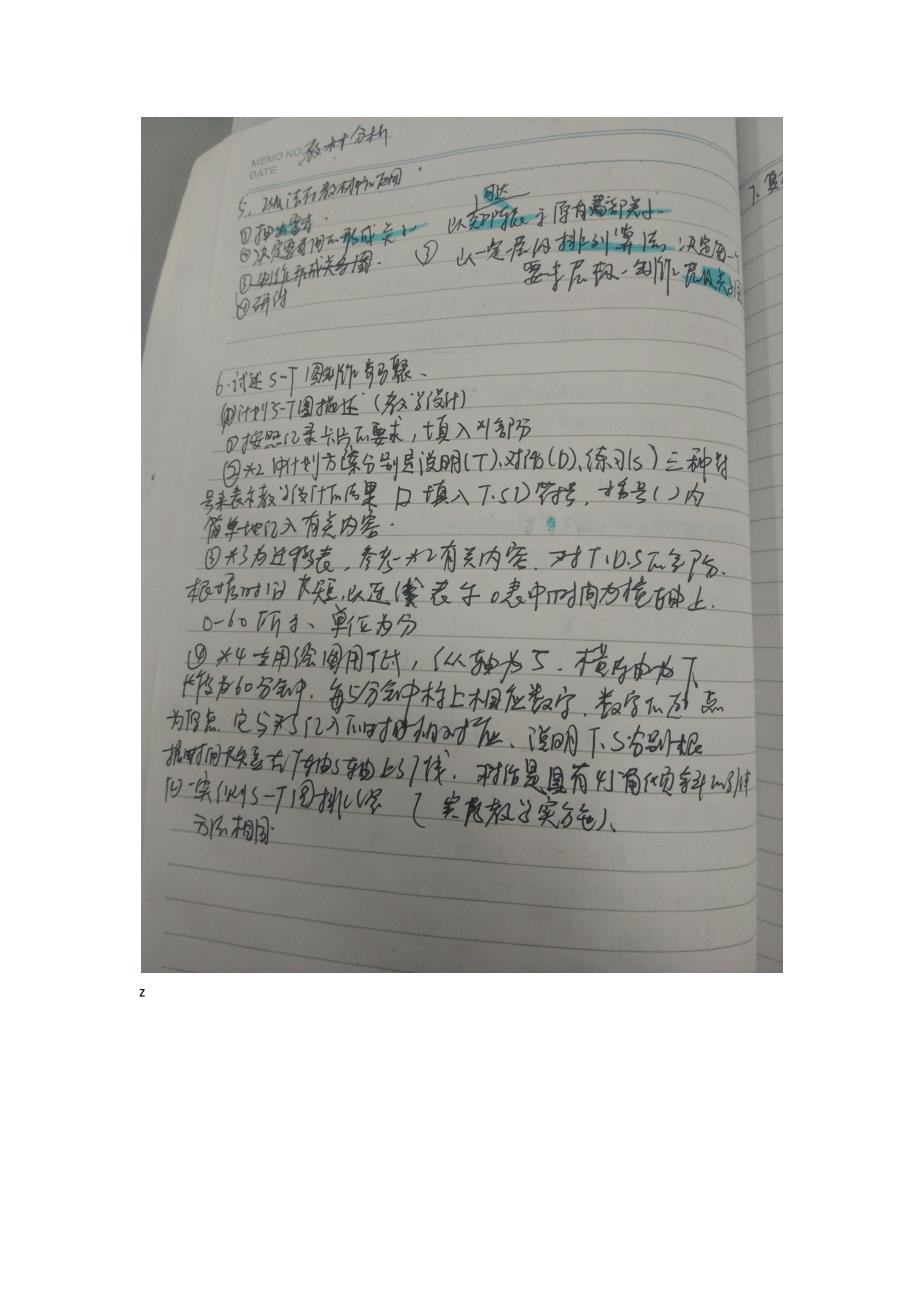 MEMO NO.
DATE
教材分析
5. ISM法在教材中的应用
①抽出要素.
②决定要素间的形成关系
③制作形成关系图.
④研讨
可达
以矩阵表示原有端部关系.
③ 以一定层级排列算法, 决定每一个
要素层级, 制作层级关系图
7.
6.试述S-T图制作步骤.
计划S-T图描述 (教学设计)
①按照记录卡片的要求, 填入*1部分
②*2中计划方案分别是说明(T).对话(D).练习(S)三种符
号来表示教学设计的结果 口填入T.S.D符号, 括号()内
简单地记入有关内容.
③*3为过程表, 参考*2有关内容. 对T.D.S的
根据时间长短, 以连续表示 表中时间为横轴上.
0-60所示、单位为分
④*4专用绘图用纸, 纵轴为S. 横轴为T.
长度为60分钟. 每5分钟标上相应数字. 数字的 点
为原点 它与*3记入的时间相对应. 说明T.S分别根
据时间长短在T轴S轴上引线. 对话是具有45角倾斜的引线
实例S-T图描述 (实际教学实施).
方法相同.
z